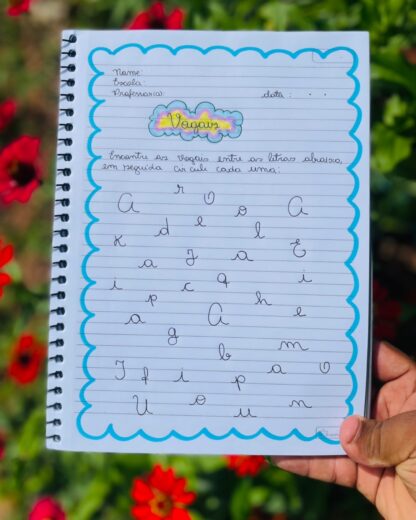 Nome:
Escola:
Professora: data: . .
Vogais
Encontre as vogais entre as letras abaixo,
em seguida circule cada uma:
r O
A o A
d e l
K a J a E
i c q i
p h
a A e
g
b m
J f i p a O
U o u n